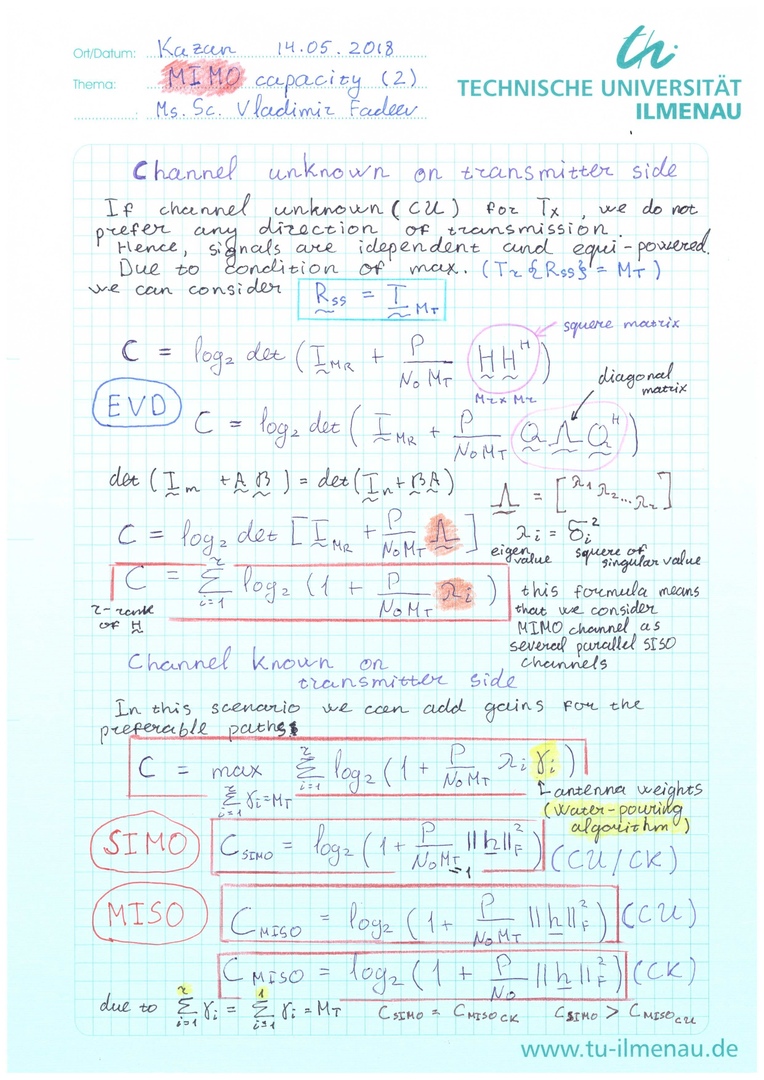 Ort/Datum: Kazan 14.05.2018
Thema: MIMO capacity (2)
Ms. Sc. Vladimir Fadeev
th
TECHNISCHE UNIVERSITÄT
ILMENAU
Channel unknown on transmitter side
If channel unknown (CU) for Tx, we do not
prefer any direction of transmission.
Hence, signals are idependent and equi-powered.
Due to condition of max. (Tr{Rss} = MT)
we can consider Rss = I MT
squere matrix
C = log₂ det (I MR + P/(N₀ MT) H H^H)
Mr x Mr
diagonal
matrix
EVD
C = log₂ det (I MR + P/(N₀ MT) Q Λ Q^H)
det (I m + A B) = det (I n + B A)
Λ = [λ1 λ2 ... λr]
C = log₂ det [I MR + P/(N₀ MT) Λ]
λi = σi²
eigen value squere of singular value
C = Σ_{i=1}^{r} log₂ (1 + P/(N₀ MT) λi)
r - rank
of H
this formula means
that we consider
MIMO channel as
several parallel SISO
channels
Channel known on
transmitter side
In this scenario we can add gains for the
preferable paths:
C = max_{Σ_{i=1}^{r} γi = MT} Σ_{i=1}^{r} log₂ (1 + P/(N₀ MT) λi γi)
antenna weights
(water-pouring
algorithm)
SIMO
C SIMO = log₂ (1 + P/(N₀ MT) ||h||²_F) (CU/CK)
=1
MISO
C MISO = log₂ (1 + P/(N₀ MT) ||h||²_F) (CU)
C MISO = log₂ (1 + P/N₀ ||h||²_F) (CK)
due to Σ_{i=1}^{r} γi = Σ_{i=1}^{1} γi = MT C SIMO = C MISO CK C SIMO > C MISO CU
www.tu-ilmenau.de